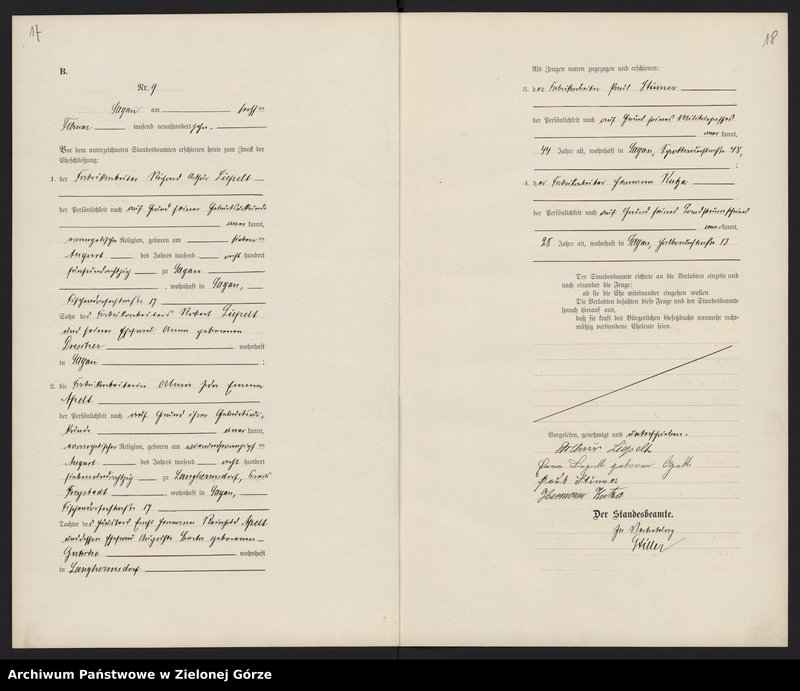 17
B.
Nr. 9
Sagan am sechsten
Februar tausend neunhundert zehn.
Vor dem unterzeichneten Standesbeamten erschienen heute zum Zweck der
Eheschließung:
1. der Fabrikarbeiter Richard Arthur Liepelt
der Persönlichkeit nach auf Grund seiner Geburtsurkunde
anerkannt,
evangelischer Religion, geboren am siebenten
August des Jahres tausend acht hundert
fünfundachtzig zu Sagan
, wohnhaft in Sagan,
Fischendorferstraße 17
Sohn des Fabrikarbeiters Robert Liepelt
und seiner Ehefrau Anna geborenen
Drescher wohnhaft
in Sagan ;
2. die Fabrikarbeiterin Anna Ida Emma
Apelt
der Persönlichkeit nach auf Grund ihrer Geburtsur-
kunde anerkannt,
evangelischer Religion, geboren am
August des Jahres tausend acht hundert
siebenundachtzig zu Langhermsdorf, Kreis
Freystadt , wohnhaft in Sagan,
Fischendorferstraße 17
Tochter des Häuslers Ernst Hermann Reinhold Apelt
und dessen Ehefrau Auguste Berta geborenen
wohnhaft
in Langhermsdorf
18
Als Zeugen waren zugezogen und erschienen:
3. der Fabrikarbeiter Paul Stumer
der Persönlichkeit nach auf Grund seines Militärpasses
anerkannt,
44 Jahre alt, wohnhaft in Sagan, Sprottauerstraße 48,
;
4. der Fabrikarbeiter Hermann Kutza
der Persönlichkeit nach auf Grund seines Landsturmscheines
anerkannt,
28 Jahre alt, wohnhaft in Sagan, Halbauerstraße 13
Der Standesbeamte richtete an die Verlobten einzeln und
nach einander die Frage:
ob sie die Ehe miteinander eingehen wollen.
Die Verlobten bejahten diese Frage und der Standesbeamte
sprach hierauf aus,
daß sie kraft des Bürgerlichen Gesetzbuchs nunmehr recht-
mäßig verbundene Eheleute seien.
Vorgelesen, genehmigt und unterschrieben.
Arthur Liepelt
Anna Liepelt geborene Apelt
Paul Stumer
Hermann Kutza
Der Standesbeamte.
In Vertretung
Hiller
Archiwum Państwowe w Zielonej Górze